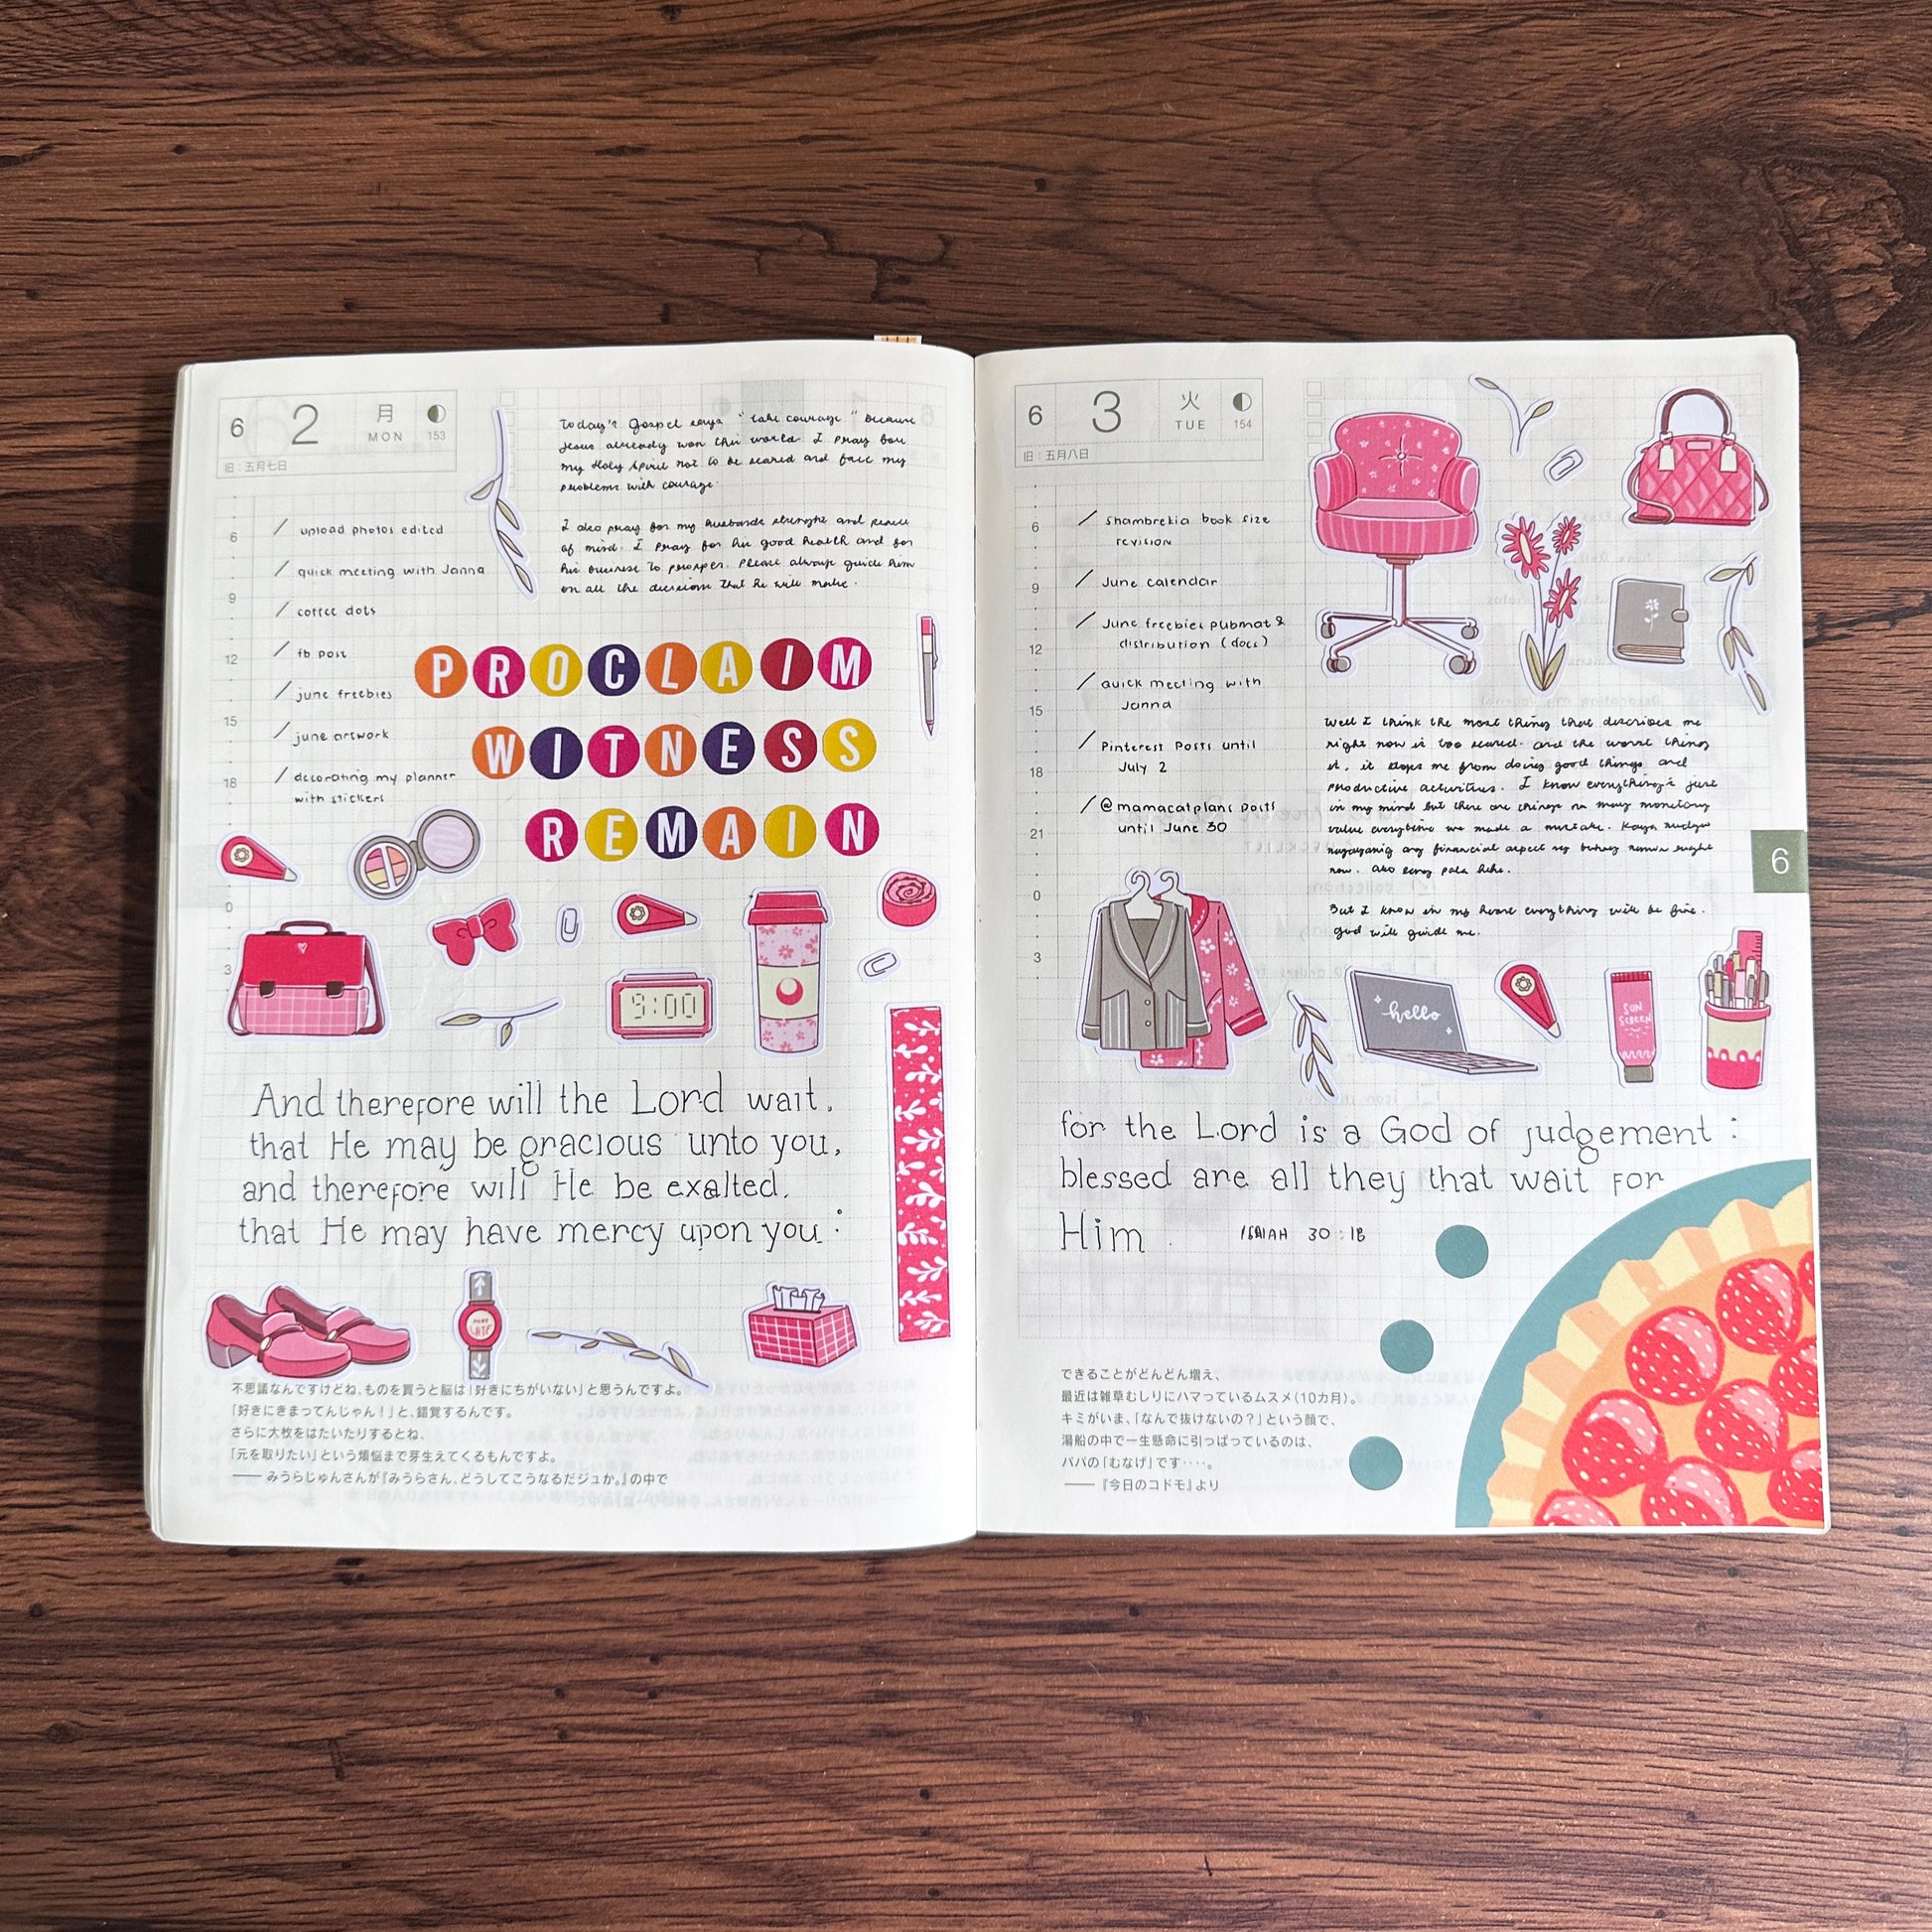 6 2 月 MON 153
旧：五月七日
today's Gospel says "take courage" because
Jesus already won this world. I pray for
my Holy Spirit not to be scared and face my
problems with courage.
I also pray for my husbands strenght and peace
of mind. I pray for his good health and for
his business to prosper. Please always guide him
on all the decisions that he will make.
6
9
12
15
18
0
3
/ upload photos edited
/ quick meeting with Janna
/ coffee dots
/ fb post
/ june freebies
/ june artwork
/ decorating my planner
with stickers
PROCLAIM
WITNESS
REMAIN
9:00
And therefore will the Lord wait,
that He may be gracious unto you,
and therefore will He be exalted,
that He may have mercy upon you :
不思議なんですけどね、ものを買うと脳は「好きにちがいない」と思うんですよ。
「好きにきまってんじゃん！」と、錯覚するんです。
さらに大枚をはたいたりするとね、
「元を取りたい」という煩悩まで芽生えてくるもんですよ。
―― みうらじゅんさんが『みうらさん、どうしてこうなるだジュか。』の中で
6 3 火 TUE 154
旧：五月八日
6
9
12
15
18
21
0
3
/ shambrekia book size
revision
/ June calendar
/ June freebies pubmat &
distribution (docs)
/ quick meeting with
Janna
/ Pinterest Posts until
July 2
/ @mamacatplans posts
until June 30
Well I think the most things that describes me
right now is too scared. and the worst thing
is, it stops me from doing good things and
productive activities. I know everything's just
in my mind but there are things na may monetary
value everytime we made a mistake. Kaya
ang financial aspect ng buhay namin right
now.
But I know in my heart everything will be fine.
God will guide me.
6
hello
SUN
SCREEN
for the Lord is a God of judgement :
blessed are all they that wait for
Him . ISAIAH 30:18
できることがどんどん増え、
最近は雑草むしりにハマっているムスメ（10カ月）。
キミがいま、「なんで抜けないの？」という顔で、
湯船の中で一生懸命に引っぱっているのは、
パパの「むなげ」です‥‥。
―― 『今日のコドモ』より